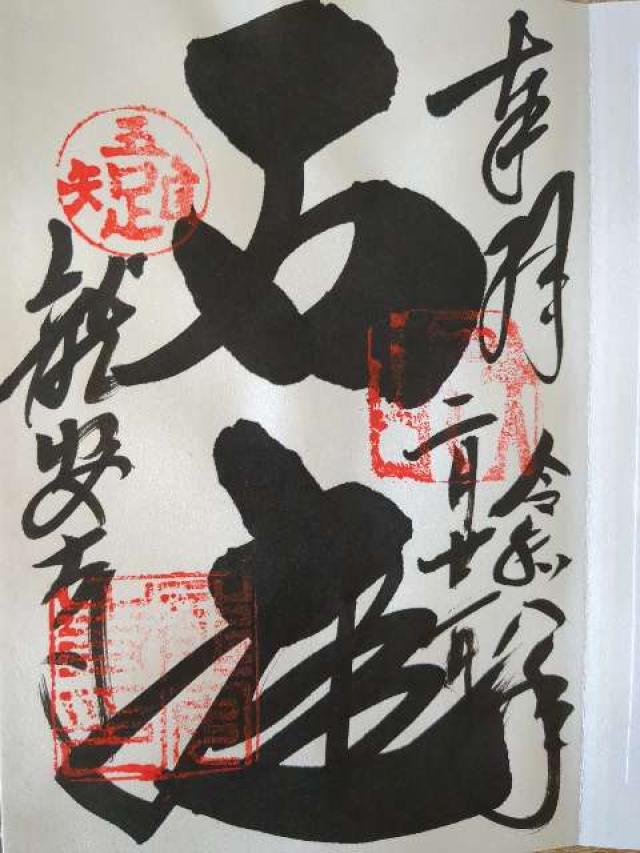 奉拝
令和八年
二月廿一日
石庭
吾唯足知
龍安寺